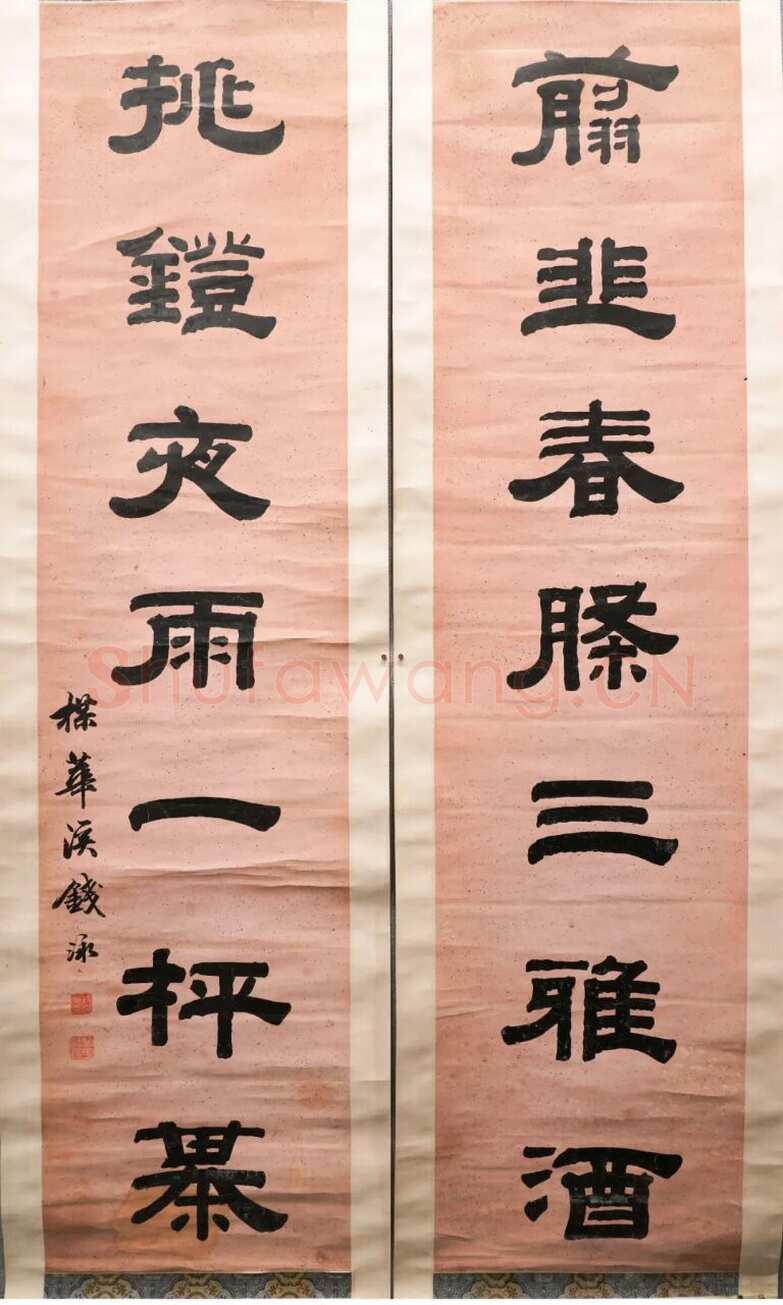 翦韭春三雅酒
挑鐙夜雨一枰棊
楳華溪錢泳
Shufawang.CN